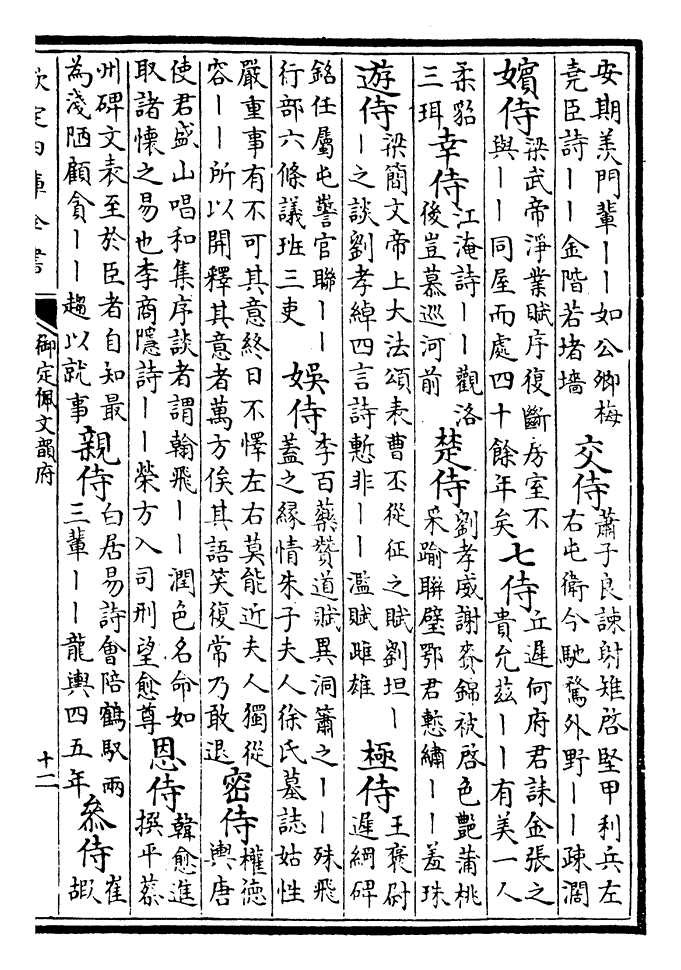 安期羨門輩丨丨如公卿梅
堯臣詩丨丨金階若堵墻
交侍
蕭子良諫射雉啓堅甲利兵左
右屯衛今馳騖外野丨丨疎濶
嬪侍
梁武帝淨業賦序復斷房室不
與丨丨同屋而處四十餘年矣
七侍
丘遲何府君誄金張之
貴允茲丨丨有美一人
柔貂
三珥
幸侍
江淹詩丨丨觀洛
後豈慕巡河前
楚侍
劉孝威謝賚錦被啓色艷蒲桃
采踰聨璧鄂君慙繡丨丨羞珠
遊侍
梁簡文帝上大法頌表曹丕從征之賦劉坦丨
丨之談劉孝綽四言詩慙非丨丨濫賦雌雄
極侍
王褒尉
遲綱碑
銘任屬屯警官聨丨丨
行部六條議班三吏
娛侍
李百藥贊道賦異洞簫之丨丨殊飛
蓋之緣情朱子夫人徐氏墓誌姑性
嚴重事有不可其意終日不懌左右莫能近夫人獨從
容丨丨所以開釋其意者萬方俟其語笑復常乃敢退
密侍
權德
輿唐
使君盛山唱和集序談者謂翰飛丨丨潤色名命如
取諸懷之易也李商隱詩丨丨榮方入司刑望愈尊
恩侍
韓愈進
撰平蔡
州碑文表至於臣者自知最
為淺陋顧貪丨丨趨以就事
親侍
白居易詩會陪鶴馭兩
三輩丨丨龍輿四五年
叅侍
崔
嘏
欽定四庫全書
御定佩文韻府
十二